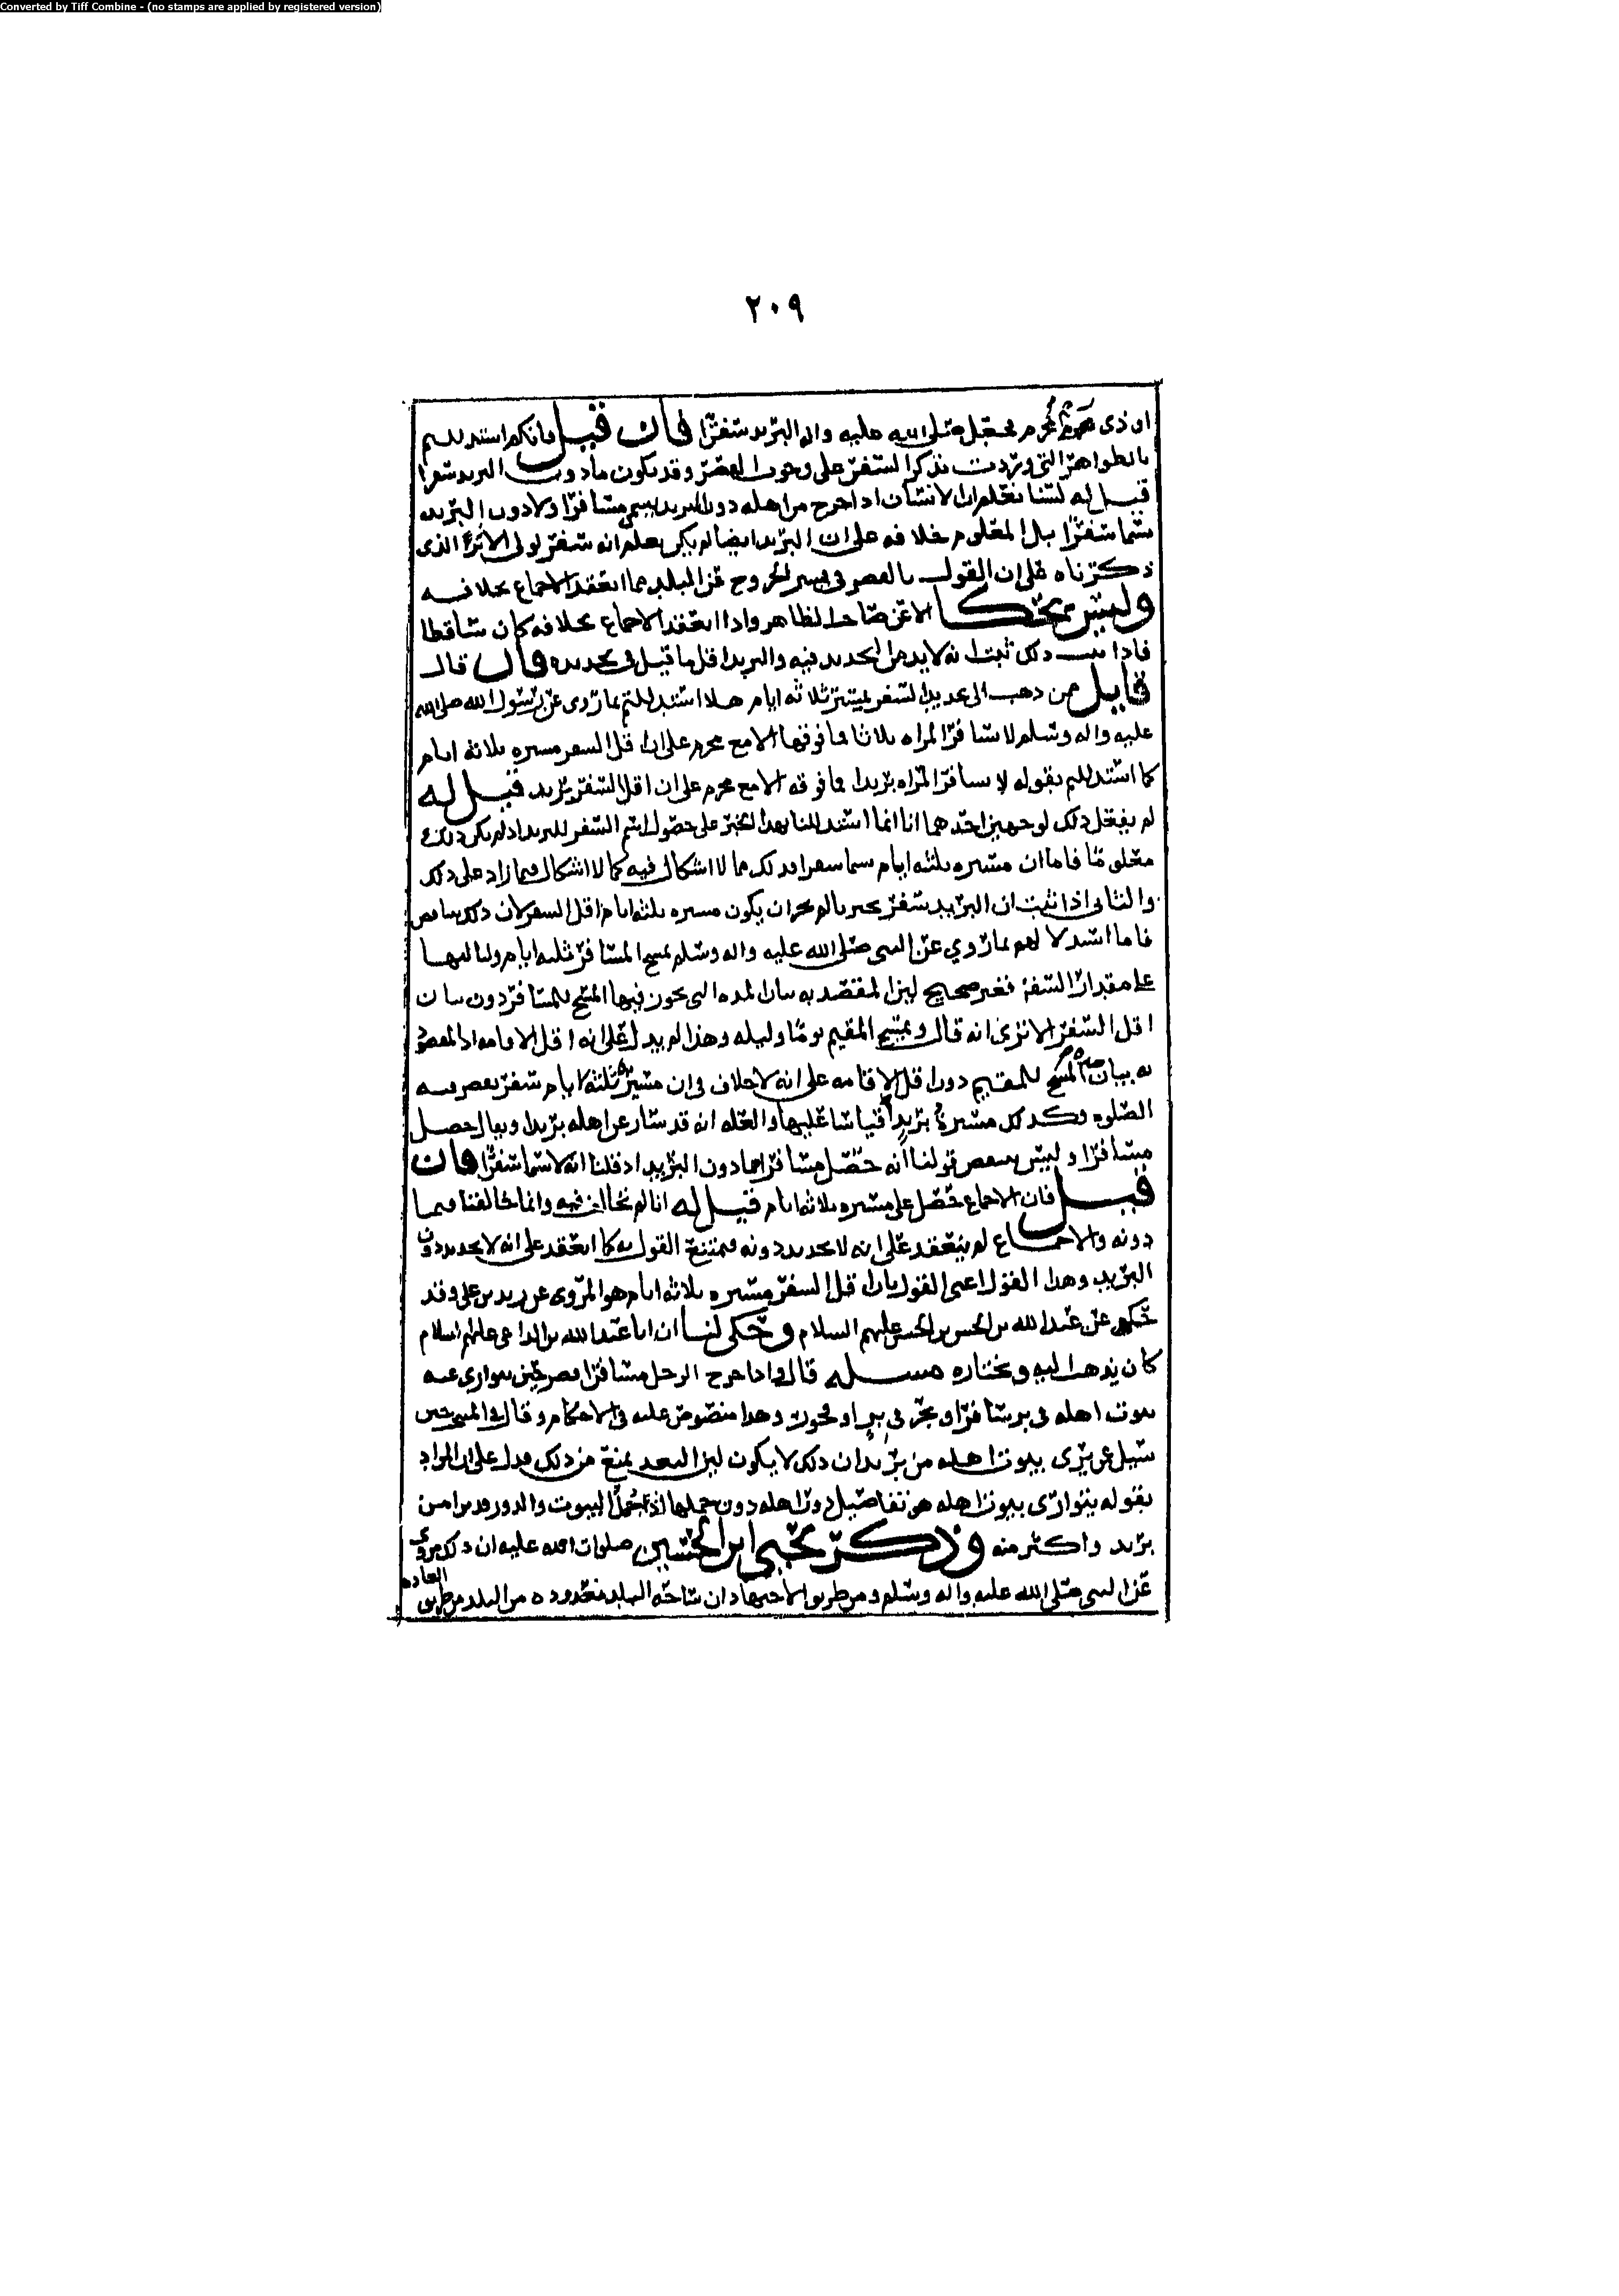 Converted by Tiff Combine - (no stamps are applied by registered version)
٢٠٩
او ذى محرم فجعل صلى الله عليه واله البريد سفرا فان قيل فانكم استدللتم
بالظواهر التى وردت بذكر السفر على وجوب القصر وقد يكون مادون البريد سفرا
قيل له لسنا نعلم ان الانسان اذا خرج من اهله دون البريد يسمى مسافرا ولا دون البريد
سما سفرا بل المعلوم خلافه على ان البريد ايضا لم يكن يعلم انه سفر لولى الاثر الذى
ذكرناه على ان القول بالقصر فى يسير الخروج عن البلد مما انعقد الاجماع بخلافه
وليس يحكا الا عن صاحب الظاهر واذا انعقد الاجماع بخلافه كان ساقطا
فاذا ثبت ذلك ثبت انه لابد من التحديد فيه والبريد اقل ما قيل فى تحديده فان قال
قايل ممن ذهب الى تحديد السفر بمسير ثلاثه ايام هلا استدللتم بما روى عن رسول الله صلى الله
عليه واله وسلم لا تسافر المراه ثلاثا فما فوقها الا مع محرم على ان اقل السفر مسيره ثلاثه ايام
كما استدللتم بقوله لا تسافر المراه بريدا فما فوقه الا مع محرم على ان اقل السفر بريد قيل له
لم نفعل ذلك لوجهين احدهما انا انما استدللنا بهذا الخبر على حصول اسم السفر للبريد اذ لم يكن ذلك
معلوما فاما ان مسيره ثلثه ايام سما سفرا فذلك مما لا اشكال فيه كما لا اشكال فيما زاد على ذلك
والثانى اذا ثبت ان البريد سفر بخبرنا لم يجز ان يكون مسيره ثلثه ايام اقل السفر لان ذلك يناقض
فاما استدلالهم بما روي عن النبى صلى الله عليه واله وسلم يمسح المسافر ثلثه ايام ولياليها
على مقدار السفر فغير صحيح ليس المقصد به بيان المده التى يجوز فيها المسح للمسافر دون بيان
اقل السفر الا ترى انه قال ويمسح المقيم يوما وليله وهذا لم يدل على انه اقل الاقامه اذ المقصود
به بيان مده المسح للمقيم دون اقل الاقامه على انه لا خلاف فى ان مسير ثلثه ايام سفر يقصر فيه
الصلوه وكذلك مسيرة بريد قياسا عليها والعله انه قد سار عن اهله بريدا
مسافرا وليس ينقض قولنا انه حصل مسافرا بمادون البريد اذ قلنا انه لا سما سفرا فان
قيل فان الاجماع حصل على مسيره ثلاثه ايام قيل له انا لم نخالف فيه وانما خالفنا فيما
دونه والاجماع لم ينعقد على انه لا تحديد دونه فيمتنع القول به كما انعقد على انه لا تحديد دون
البريد وهذا القول اعنى القول بان اقل السفر مسيره ثلاثه ايام هو المروى عن زيد بن على وقد
حكى عن عبد الله بن الحسن بن الحسن عليهم السلام وحكى لنا ان ابا عبد الله بن الداعى عليهم السلام
كان يذهب اليه ويختاره مسله قال واذا خرج الرجل مسافرا قصر حين يتوارى عنه
بيوت اهله فى بر سافر او بحر وهذا منصوص عليه فى الاحكام وقال فى المنتخب حين
سيل عمن يرى بيوت اهله من بريد ان ذلك لا يكون ليس البعد يمنع من ذلك فدل على ان المراد
بقوله يتوارى بيوت اهله هو تفاصيل دور اهله دون جملها اذ جمل البيوت والدور قد يرا من
بريد واكثر منه وذكر يحيى ابن الحسين صلوات الله عليه ان ذلك مروى
عن النبى صلى الله عليه واله وسلم ومن طريق الاجتهاد ان ساحه البلد معدوده من البلد من طريق
العاده